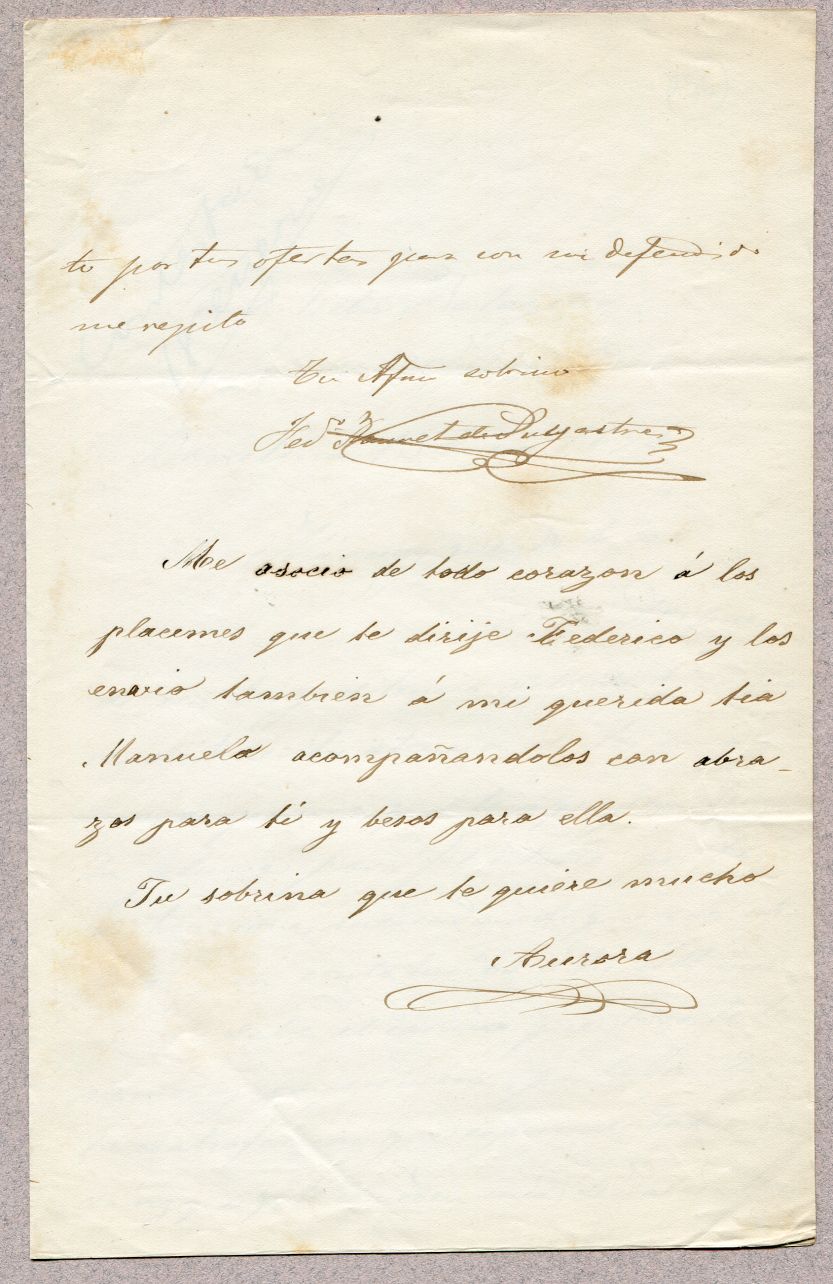 te por tus ofertas que con mi defendido
me repito
Tu Afmo sobrino
Fedco
Me asocio de todo corazon á los
placemes que te dirije Federico y los
envio tambien á mi querida tia
Manuela acompañandolos con abra-
zos para tí y besos para ella.
Tu sobrina que te quiere mucho
Aurora